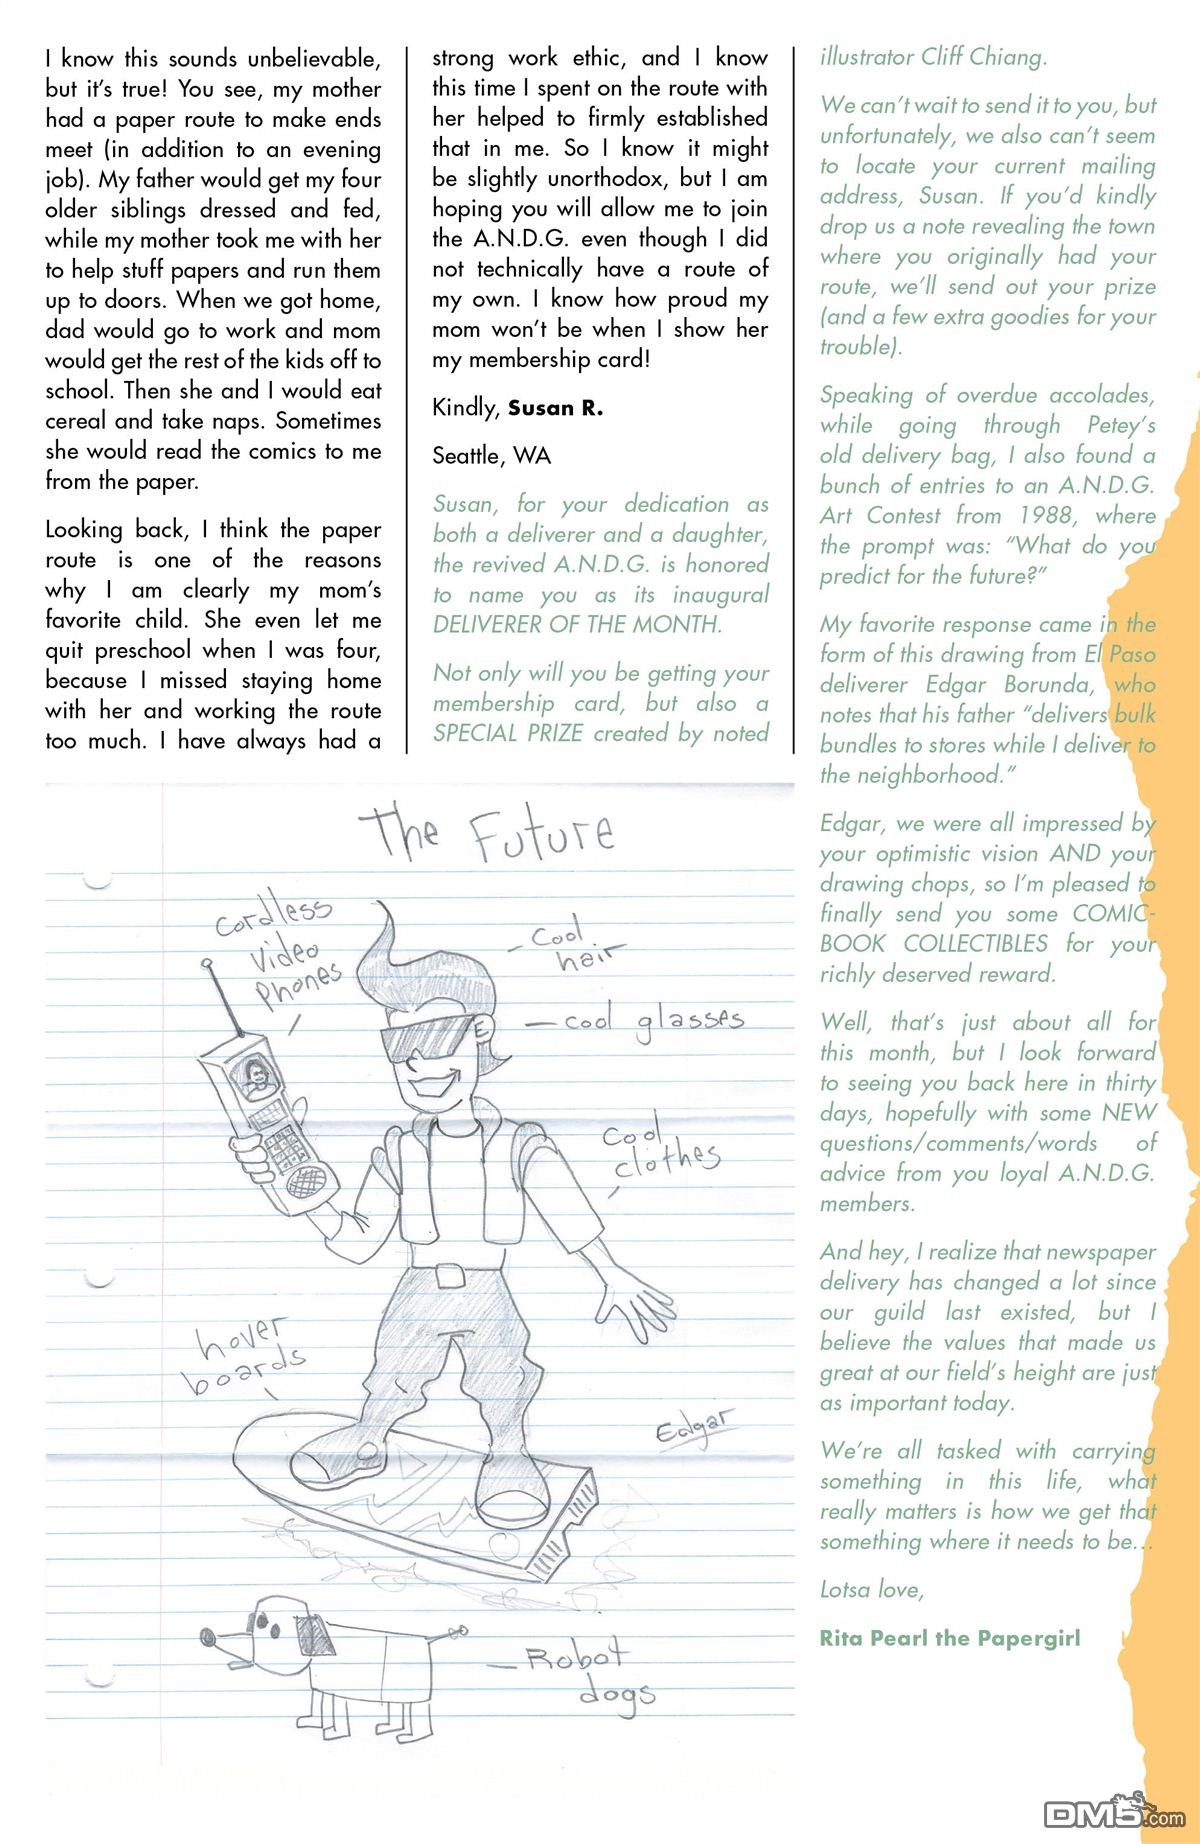 I know this sounds unbelievable,
but it's true! You see, my mother
had a paper route to make ends
meet (in addition to an evening
job). My father would get my four
older siblings dressed and fed,
while my mother took me with her
to help stuff papers and run them
up to doors. When we got home,
dad would go to work and mom
would get the rest of the kids off to
school. Then she and I would eat
cereal and take naps. Sometimes
she would read the comics to me
from the paper.
Looking back, I think the paper
route is one of the reasons
why I am clearly my mom's
favorite child. She even let me
quit preschool when I was four,
because I missed staying home
with her and working the route
too much. I have always had a
strong work ethic, and I know
this time I spent on the route with
her helped to firmly established
that in me. So I know it might
be slightly unorthodox, but I am
hoping you will allow me to join
the A.N.D.G. even though I did
not technically have a route of
my own. I know how proud my
mom won't be when I show her
my membership card!
Kindly, Susan R.
Seattle, WA
Susan, for your dedication as
both a deliverer and a daughter,
the revived A.N.D.G. is honored
to name you as its inaugural
DELIVERER OF THE MONTH.
Not only will you be getting your
membership card, but also a
SPECIAL PRIZE created by noted
illustrator Cliff Chiang.
We can't wait to send it to you, but
unfortunately, we also can't seem
to locate your current mailing
address, Susan. If you'd kindly
drop us a note revealing the town
where you originally had your
route, we'll send out your prize
(and a few extra goodies for your
trouble).
Speaking of overdue accolades,
while going through Petey's
old delivery bag, I also found a
bunch of entries to an A.N.D.G.
Art Contest from 1988, where
the prompt was: "What do you
predict for the future?"
My favorite response came in the
form of this drawing from El Paso
deliverer Edgar Borunda, who
notes that his father "delivers bulk
bundles to stores while I deliver to
the neighborhood."
Edgar, we were all impressed by
your optimistic vision AND your
drawing chops, so I'm pleased to
finally send you some COMIC-
BOOK COLLECTIBLES for your
richly deserved reward.
Well, that's just about all for
this month, but I look forward
to seeing you back here in thirty
days, hopefully with some NEW
questions/comments/words of
advice from you loyal A.N.D.G.
members.
And hey, I realize that newspaper
delivery has changed a lot since
our guild last existed, but I
believe the values that made us
great at our field's height are just
as important today.
We're all tasked with carrying
something in this life, what
really matters is how we get that
something where it needs to be...
Lotsa love,
Rita Pearl the Papergirl
The Future
cordless
video
phones
cool
hair
cool glasses
E
cool
clothes
hover
boards
Edgar
Robot
dogs
DM5.com